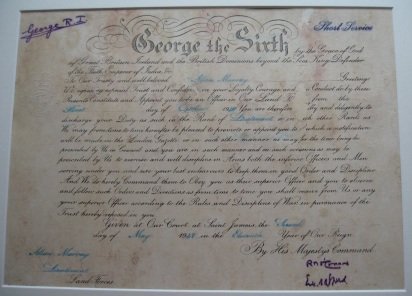 George R.I.
Short Service
George the Sixth by the Grace of God
of Great Britain, Ireland and the British Dominions beyond the Seas King, Defender
of the Faith, Emperor of India, &c.
To Our Trusty and well beloved Murray Greeting:
We, reposing especial Trust and Confidence in your Loyalty, Courage, and good Conduct, do by these
Presents Constitute and Appoint you to be an Officer in Our Land Forces from the
day of You are therefore carefully and diligently to
discharge your Duty as such in the Rank of Lieutenant or in such other Rank as
We may from time to time hereafter be pleased to promote or appoint you to, of which a notification
will be made in the London Gazette, or in such other manner as may for the time being be
prescribed by Us in Council, and you are in such manner and on such occasions as may be
prescribed by Us to exercise and well discipline in Arms both the inferior Officers and Men
serving under you and use your best endeavours to keep them in good Order and Discipline.
And We do hereby Command them to Obey you as their superior Officer, and you to observe
and follow such Orders and Directions as from time to time you shall receive from Us, or any
your superior Officer, according to the Rules and Discipline of War, in pursuance of the
Trust hereby reposed in you.
Given at Our Court, at Saint James's, the Second
day of May 1947 in the Eleventh Year of Our Reign
By His Majesty's Command
Murray
Lieutenant
Land Forces